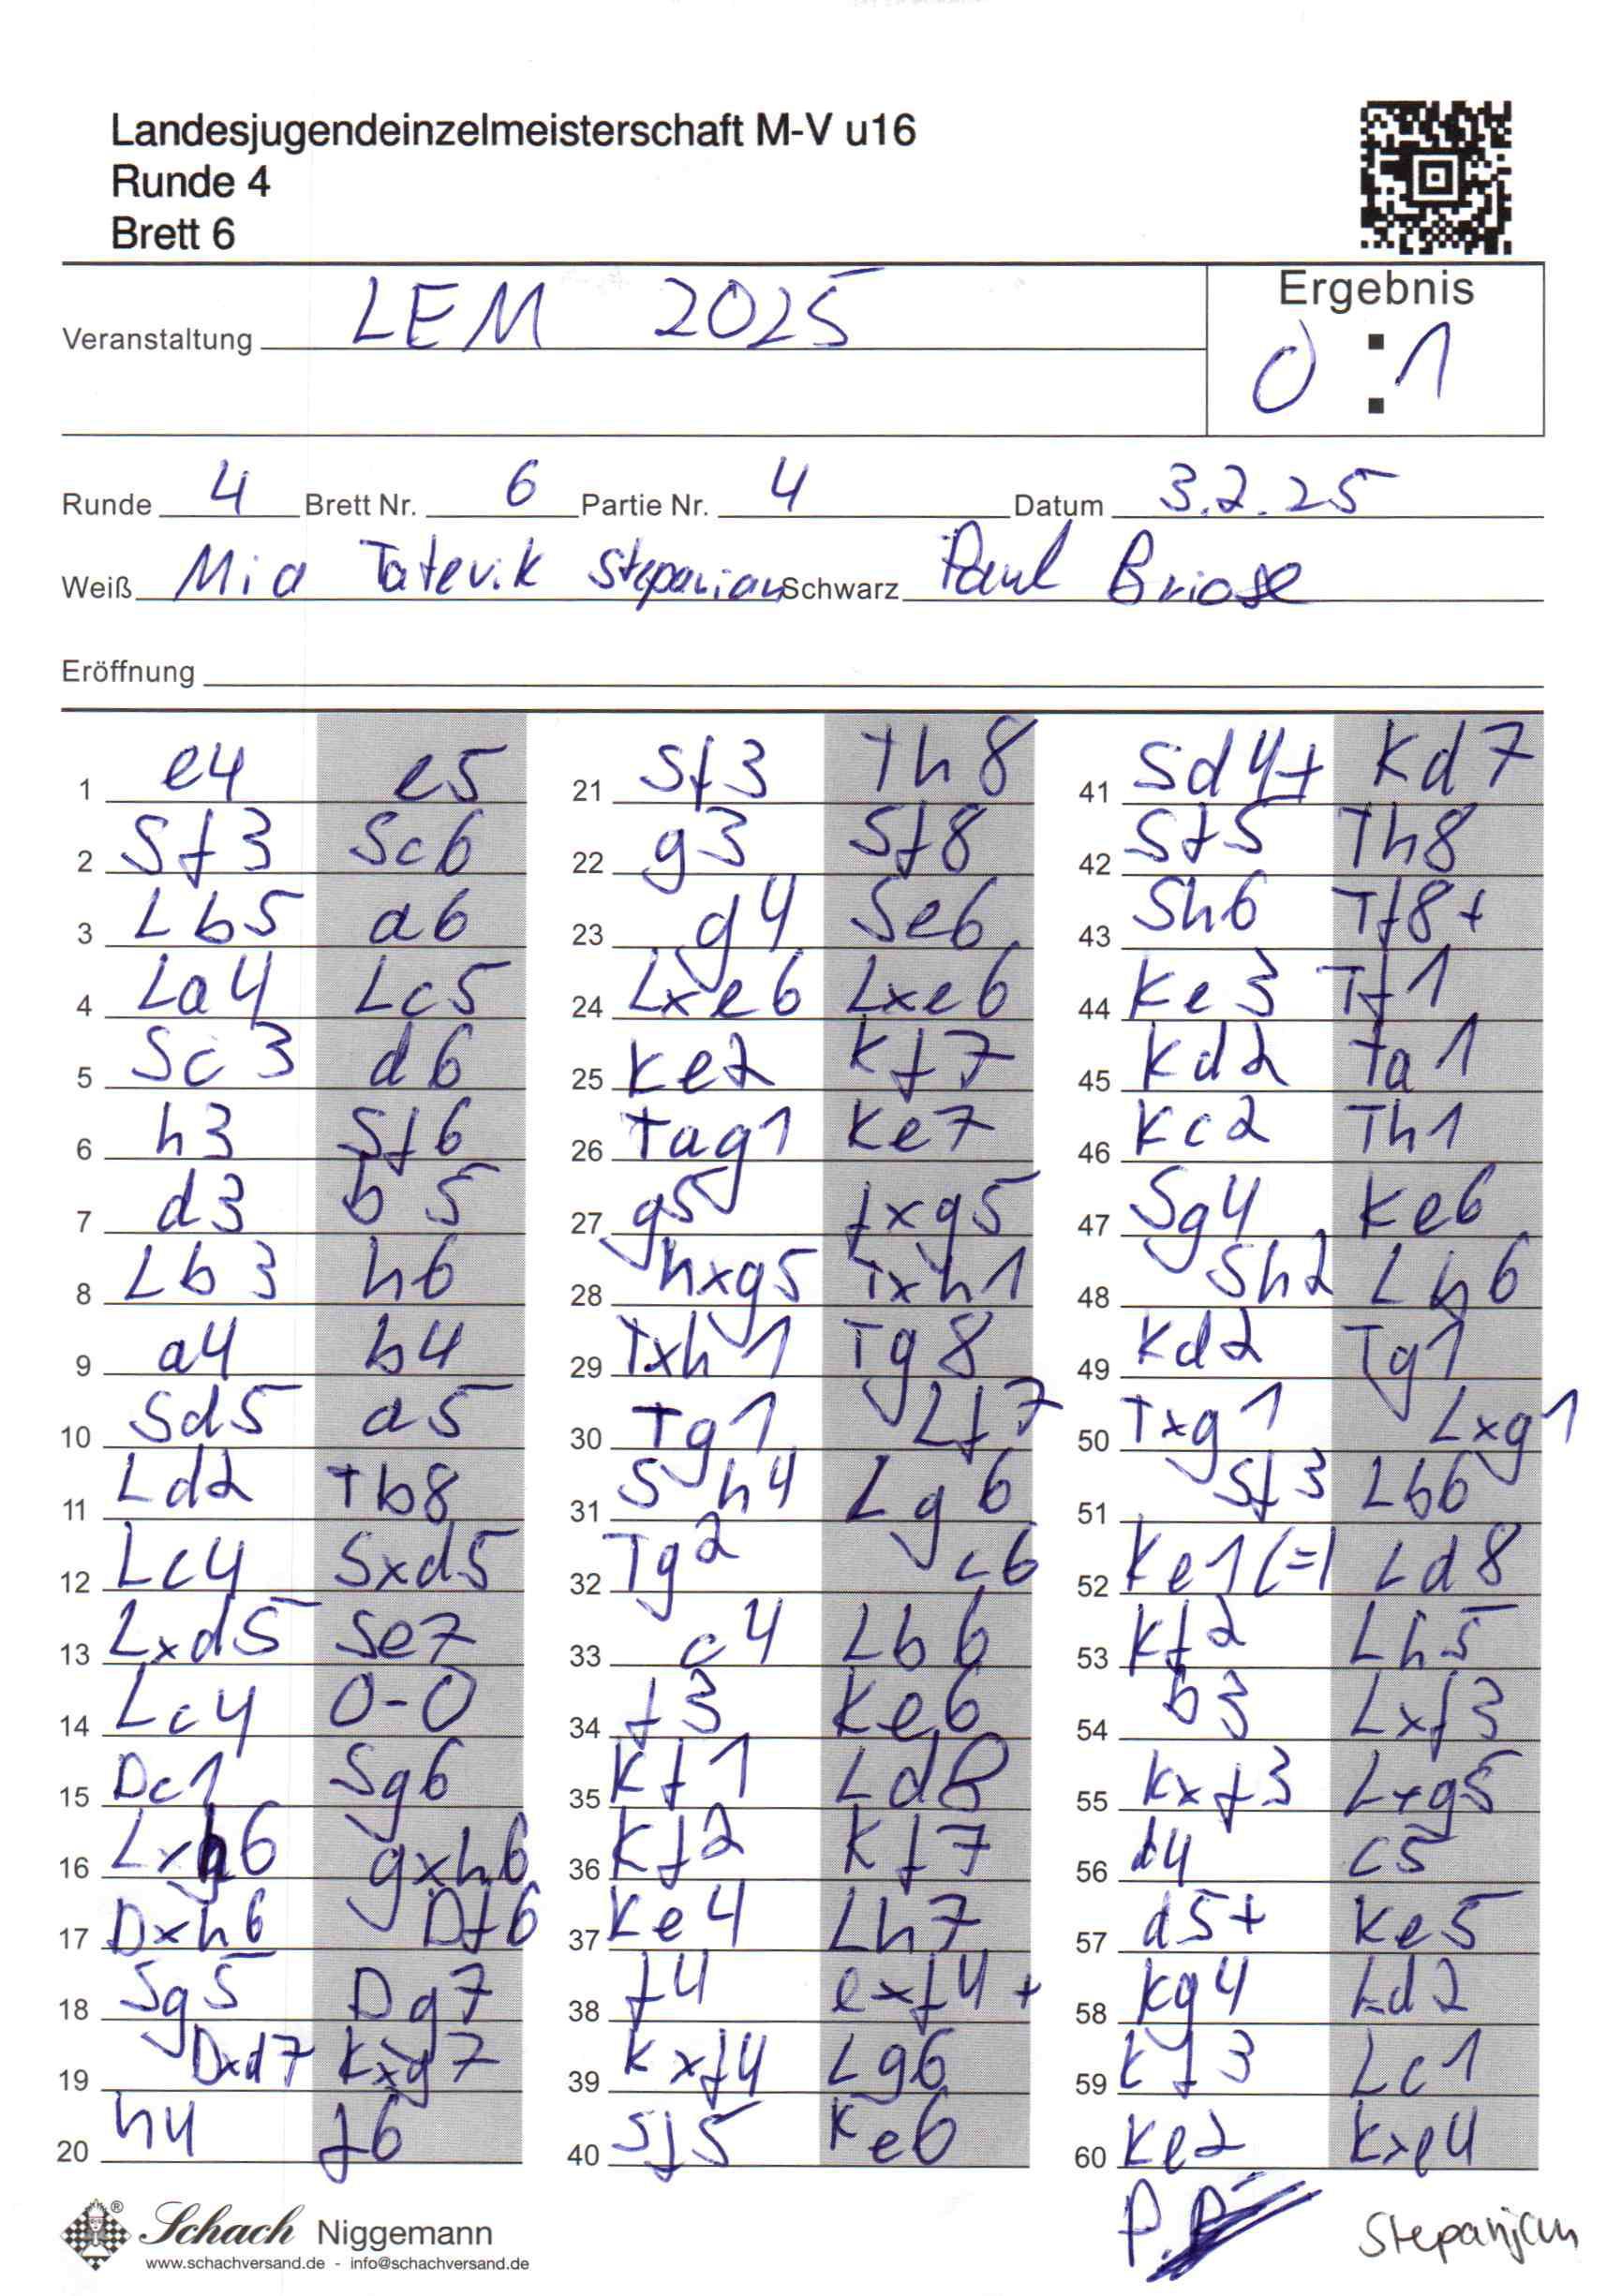 Landesjugendeinzelmeisterschaft M-V u16
Runde 4
Brett 6
Ergebnis
Veranstaltung LEM 2025
0 : 1
Runde 4 Brett Nr. 6 Partie Nr. 4 Datum 3.2.25
Weiß Mia Tatevik Stepanian Schwarz Paul Briose
Eröffnung
1 e4 e5
2 Sf3 Sc6
3 Lb5 a6
4 La4 Lc5
5 Sc3 d6
6 h3 Sf6
7 d3 b5
8 Lb3 h6
9 a4 b4
10 Sd5 a5
11 Ld2 Tb8
12 Lc4 Sxd5
13 Lxd5 Se7
14 Lc4 0-0
15 Dc1 Sg6
16 Lxh6 gxh6
17 Dxh6 Df6
18 Sg5 Dg7
19 Dxd7 Kxg7
20 h4 f6
21 Sf3 Th8
22 g3 Sf8
23 g4 Se6
24 Lxe6 Lxe6
25 Ke2 Kf7
26 Tag1 Ke7
27 g5 fxg5
28 hxg5 Txh1
29 Txh1 Tg8
30 Tg1 Lf7
31 Sh4 Lg6
32 Tg2 c6
33 c4 Lb6
34 f3 Ke6
35 Kf1 Ld8
36 Kf2 Kf7
37 Ke4 Lh7
38 f4 exf4+
39 Kxf4 Lg6
40 Sf5 Ke6
41 Sd4+ Kd7
42 Sf5 Th8
43 Sh6 Tf8+
44 Ke3 Tf1
45 Kd2 Ta1
46 Kc2 Th1
47 Sg4 Ke6
48 Sh2 Lh6
49 Kd2 Tg1
50 Txg1 Lxg1
51 Sf3 Lb6
52 Ke1 (=) Ld8
53 Kf2 Lh5
54 b3 Lxf3
55 Kxf3 Lxg5
56 d4 c5
57 d5+ Ke5
58 Kg4 Ld2
59 Kf3 Lc1
60 Ke2 Kxe4
Schach Niggemann
www.schachversand.de - info@schachversand.de
Stepanjan